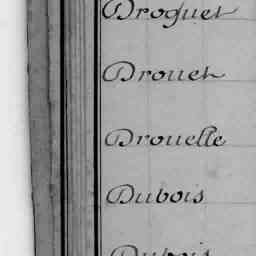 Droguet
Drouet
Drouelle
Dubois
Dubois